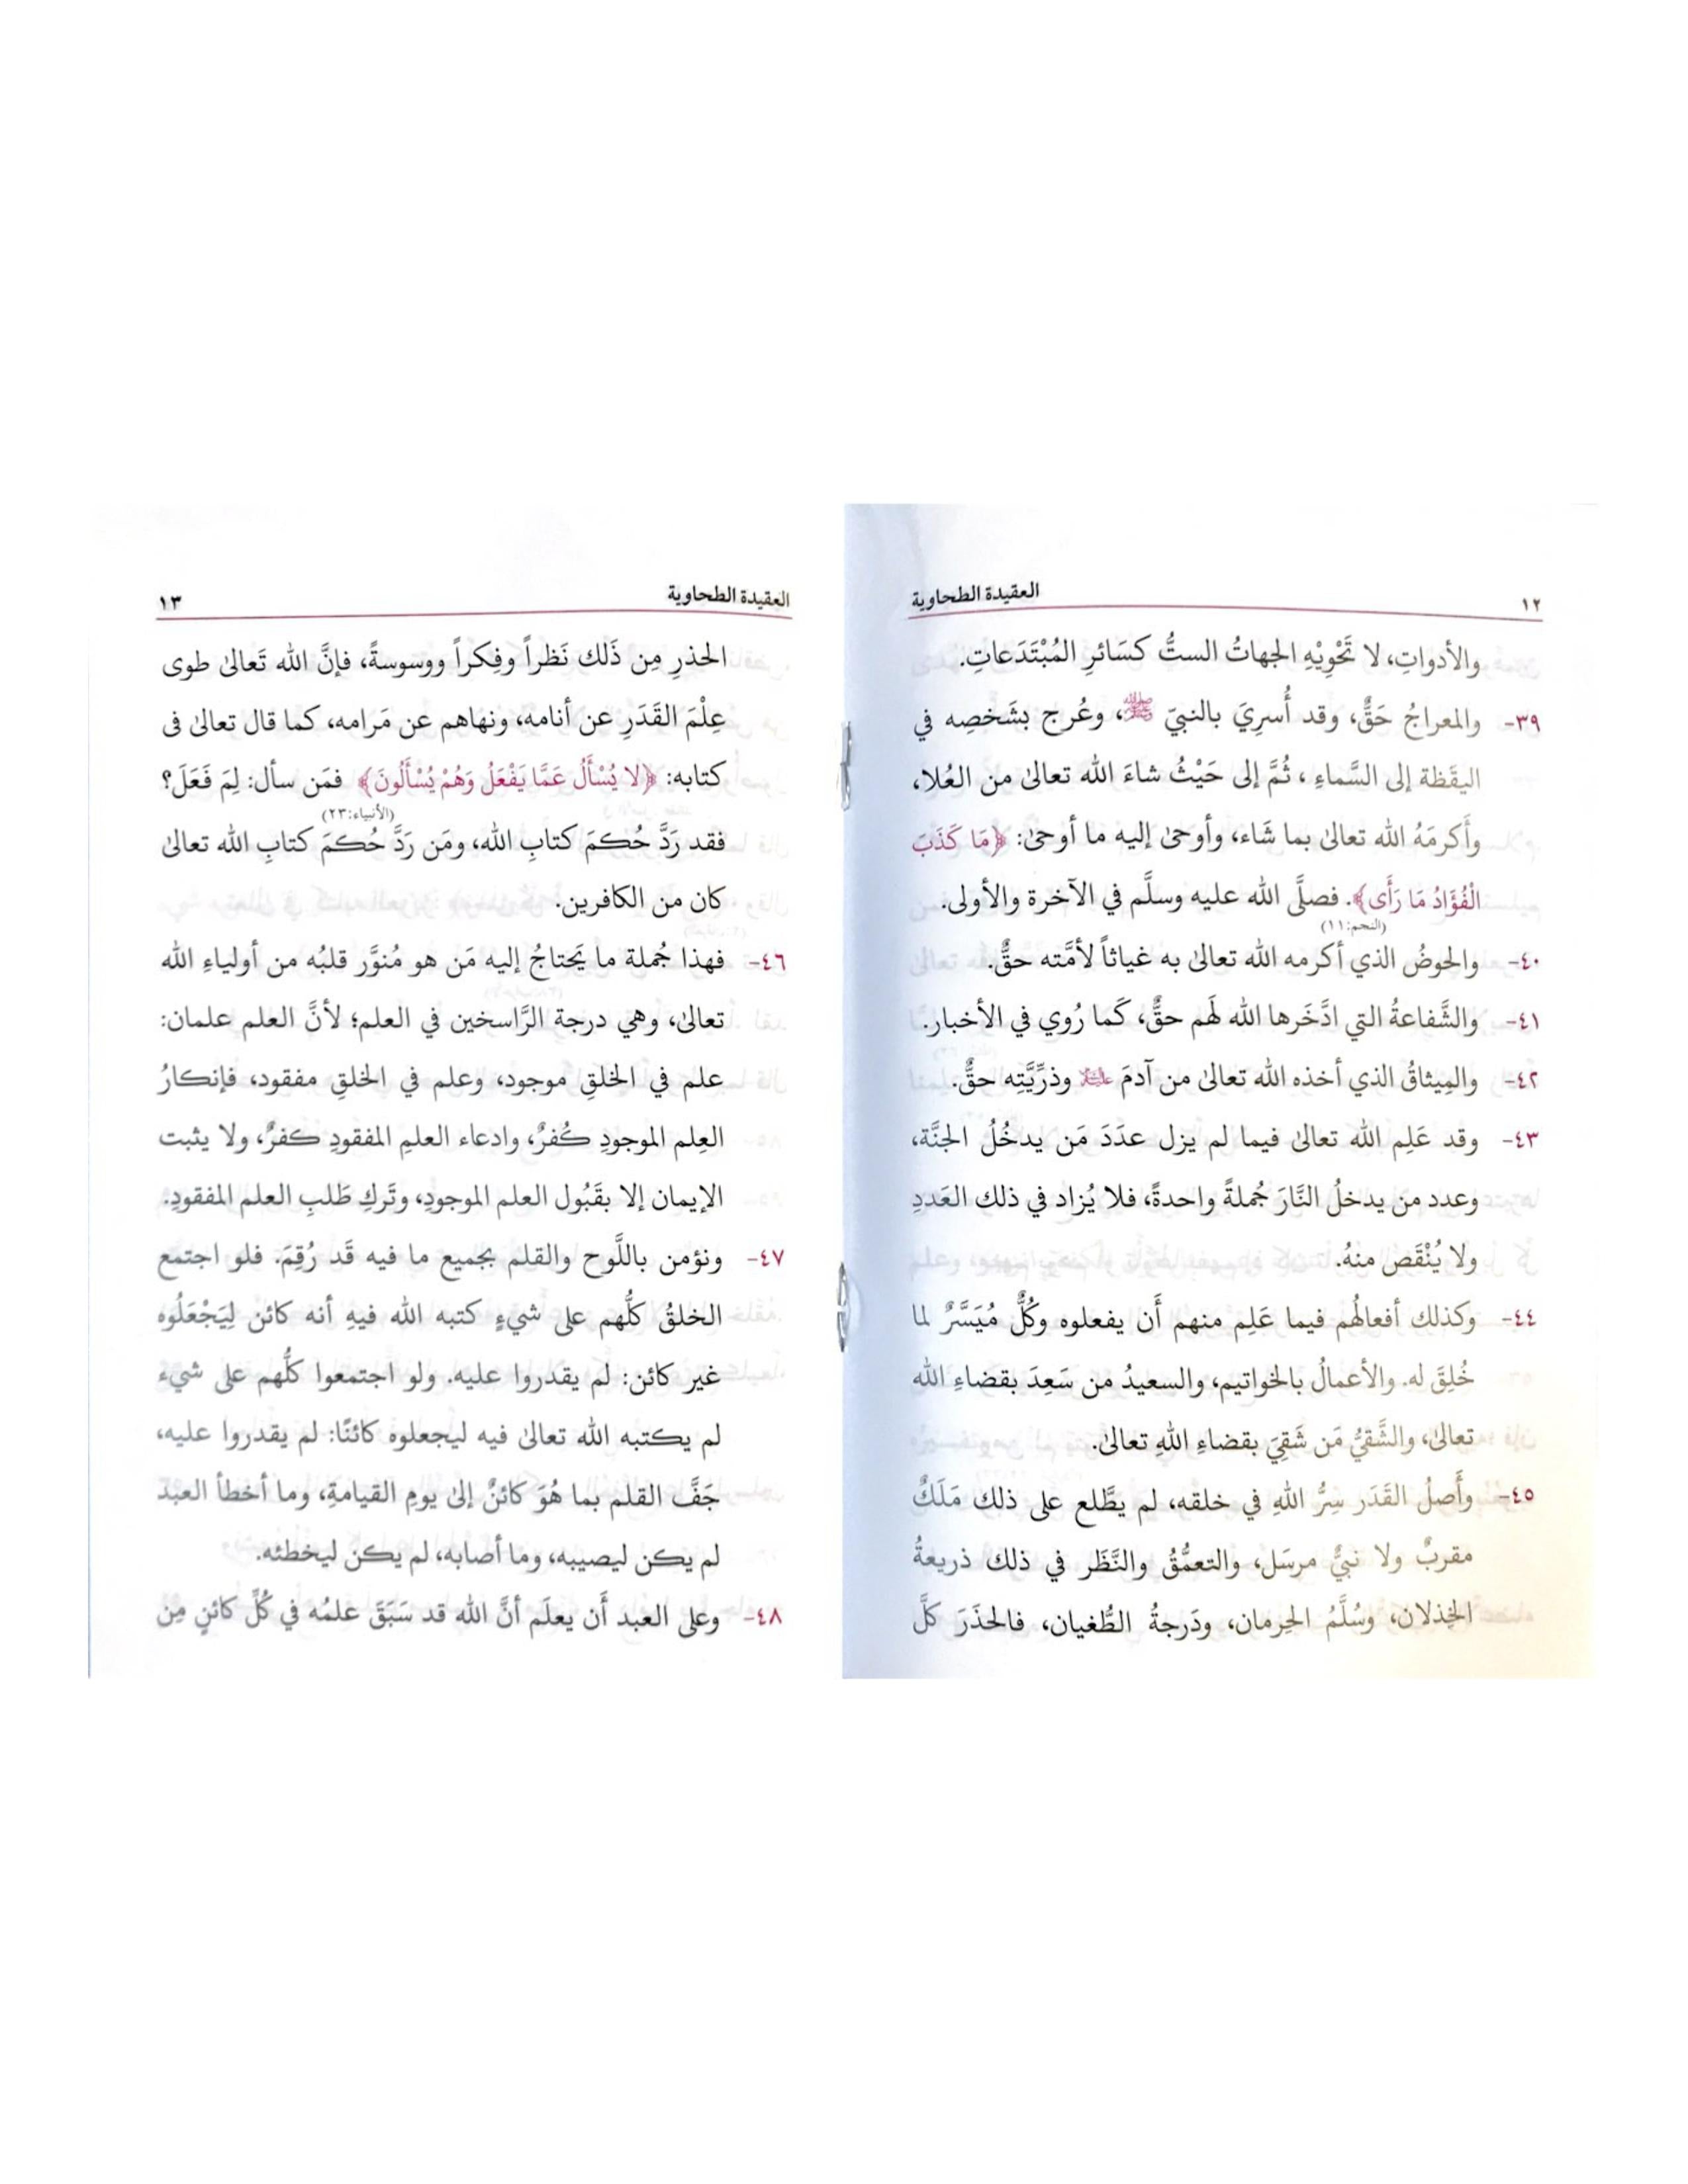 ١٢ العقيدة الطحاوية
والأدواتِ، لا تَحْوِيْهِ الجهاتُ الستُّ كسَائرِ المُبْتَدَعاتِ.
٣٩- والمعراجُ حَقٌّ، وقد أُسرِيَ بالنبيّ ﷺ، وعُرج بشَخصِه في
اليقَظة إلى السَّماءِ، ثُمَّ إلى حَيْثُ شاءَ الله تعالىٰ من العُلا،
وأَكرمَهُ الله تعالىٰ بما شَاء، وأوحىٰ إليه ما أوحىٰ: ﴿مَا كَذَبَ
الْفُؤَادُ مَا رَأَى﴾. فصلَّى الله عليه وسلَّم في الآخرة والأولى.
(النجم:١١)
٤٠- والحوضُ الذي أكرمه الله تعالىٰ به غياثاً لأمَّته حقٌّ.
٤١- والشَّفاعةُ التي ادَّخَرها الله لَهم حقٌّ، كَما رُوي في الأخبار.
٤٢- والمِيثاقُ الذي أخذه الله تعالىٰ من آدمَ عليه السلام وذرِّيَّتِه حقٌّ.
٤٣- وقد عَلِم الله تعالىٰ فيما لم يزل عدَدَ مَن يدخُلُ الجنَّة،
وعدد من يدخلُ النَّارَ جُملةً واحدةً، فلا يُزاد في ذلك العَددِ
ولا يُنْقَص منهُ.
٤٤- وكذلك أفعالُهم فيما عَلِم منهم أَن يفعلوه وكُلٌّ مُيَسَّرٌ لما
خُلِقَ له. والأعمالُ بالخواتيم، والسعيدُ من سَعِدَ بقضاءِ الله
تعالىٰ، والشَّقيُّ مَن شَقِيَ بقضاءِ اللهِ تعالىٰ.
٤٥- وأَصلُ القَدَر سِرُّ اللهِ في خلقه، لم يطَّلع على ذلك مَلَكٌ
مقربٌ ولا نبيٌّ مرسَل، والتعمُّقُ والنَّظَر في ذلك ذريعةُ
الخِذلان، وسُلَّمُ الحِرمان، ودَرجةُ الطُّغيان، فالحذَرَ كلَّ
العقيدة الطحاوية ١٣
الحذرِ مِن ذَلك نَظراً وفِكراً ووسوسةً، فإنَّ الله تَعالىٰ طوى
عِلْمَ القَدَرِ عن أنامه، ونهاهم عن مَرامه، كما قال تعالىٰ فى
كتابه: ﴿لا يُسْأَلُ عَمَّا يَفْعَلُ وَهُمْ يُسْأَلُونَ﴾ فمَن سأل: لِمَ فَعَلَ؟
(الأنبياء:٢٣)
فقد رَدَّ حُكمَ كتابِ الله، ومَن رَدَّ حُكمَ كتابِ الله تعالىٰ
كان من الكافرين.
٤٦- فهذا جُملة ما يَحتاجُ إليه مَن هو مُنوَّر قلبُه من أولياءِ الله
تعالىٰ، وهي درجة الرَّاسخين في العلم؛ لأنَّ العلم علمان:
علم في الخلقِ موجود، وعلم في الخلقِ مفقود، فإنكارُ
العِلم الموجودِ كُفرٌ، وادعاء العلمِ المفقودِ كفرٌ، ولا يثبت
الإيمان إلا بقَبُول العلم الموجودِ، وتَركِ طَلبِ العلم المفقودِ.
٤٧- ونؤمن باللَّوح والقلم بجميع ما فيه قَد رُقِمَ. فلو اجتمع
الخلقُ كلُّهم على شيءٍ كتبه الله فيهِ أنه كائن لِيَجْعَلُوه
غير كائن: لم يقدروا عليه. ولو اجتمعوا كلُّهم على شيء
لم يكتبه الله تعالىٰ فيه ليجعلوه كائنًا: لم يقدروا عليه،
جَفَّ القلم بما هُوَ كائنٌ إلىٰ يومِ القيامةِ، وما أخطأ العبدَ
لم يكن ليصيبه، وما أصابه، لم يكن ليخطئه.
٤٨- وعلى العبد أَن يعلَم أنَّ الله قد سَبَقَ علمُه في كُلِّ كائنٍ مِن